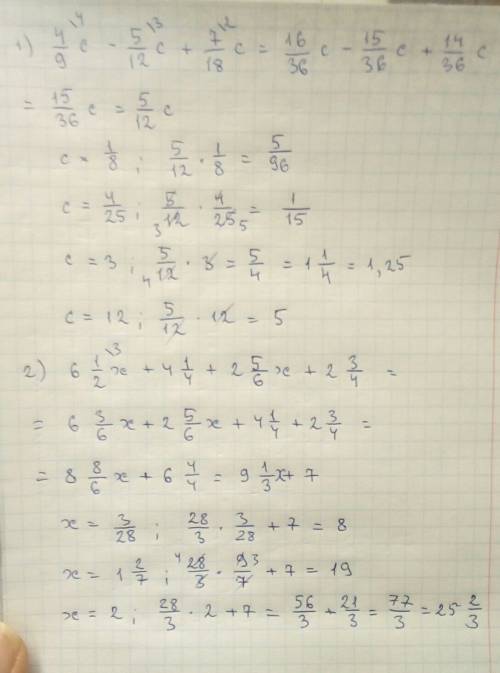 1) 4/9\4 c - 5/12\3 c + 7/18\2 c = 16/36 c - 15/36 c + 14/36 c
= 15/36 c = 5/12 c
c = 1/8 ; 5/12 · 1/8 = 5/96
c = 4/25 ; 5/3 12 · 4/25 5 = 1/15
c = 3 ; 5/4 12 · 3 = 5/4 = 1 1/4 = 1,25
c = 12 ; 5/12 · 12 = 5
2) 6 1/2\3 x + 4 1/4 + 2 5/6 x + 2 3/4 =
= 6 3/6 x + 2 5/6 x + 4 1/4 + 2 3/4 =
= 8 8/6 x + 6 4/4 = 9 1/3 x + 7
x = 3/28 ; 28/3 · 3/28 + 7 = 8
x = 1 2/7 ; 4 28/3 · 9 3/7 + 7 = 19
x = 2 ; 28/3 · 2 + 7 = 56/3 + 21/3 = 77/3 = 25 2/3